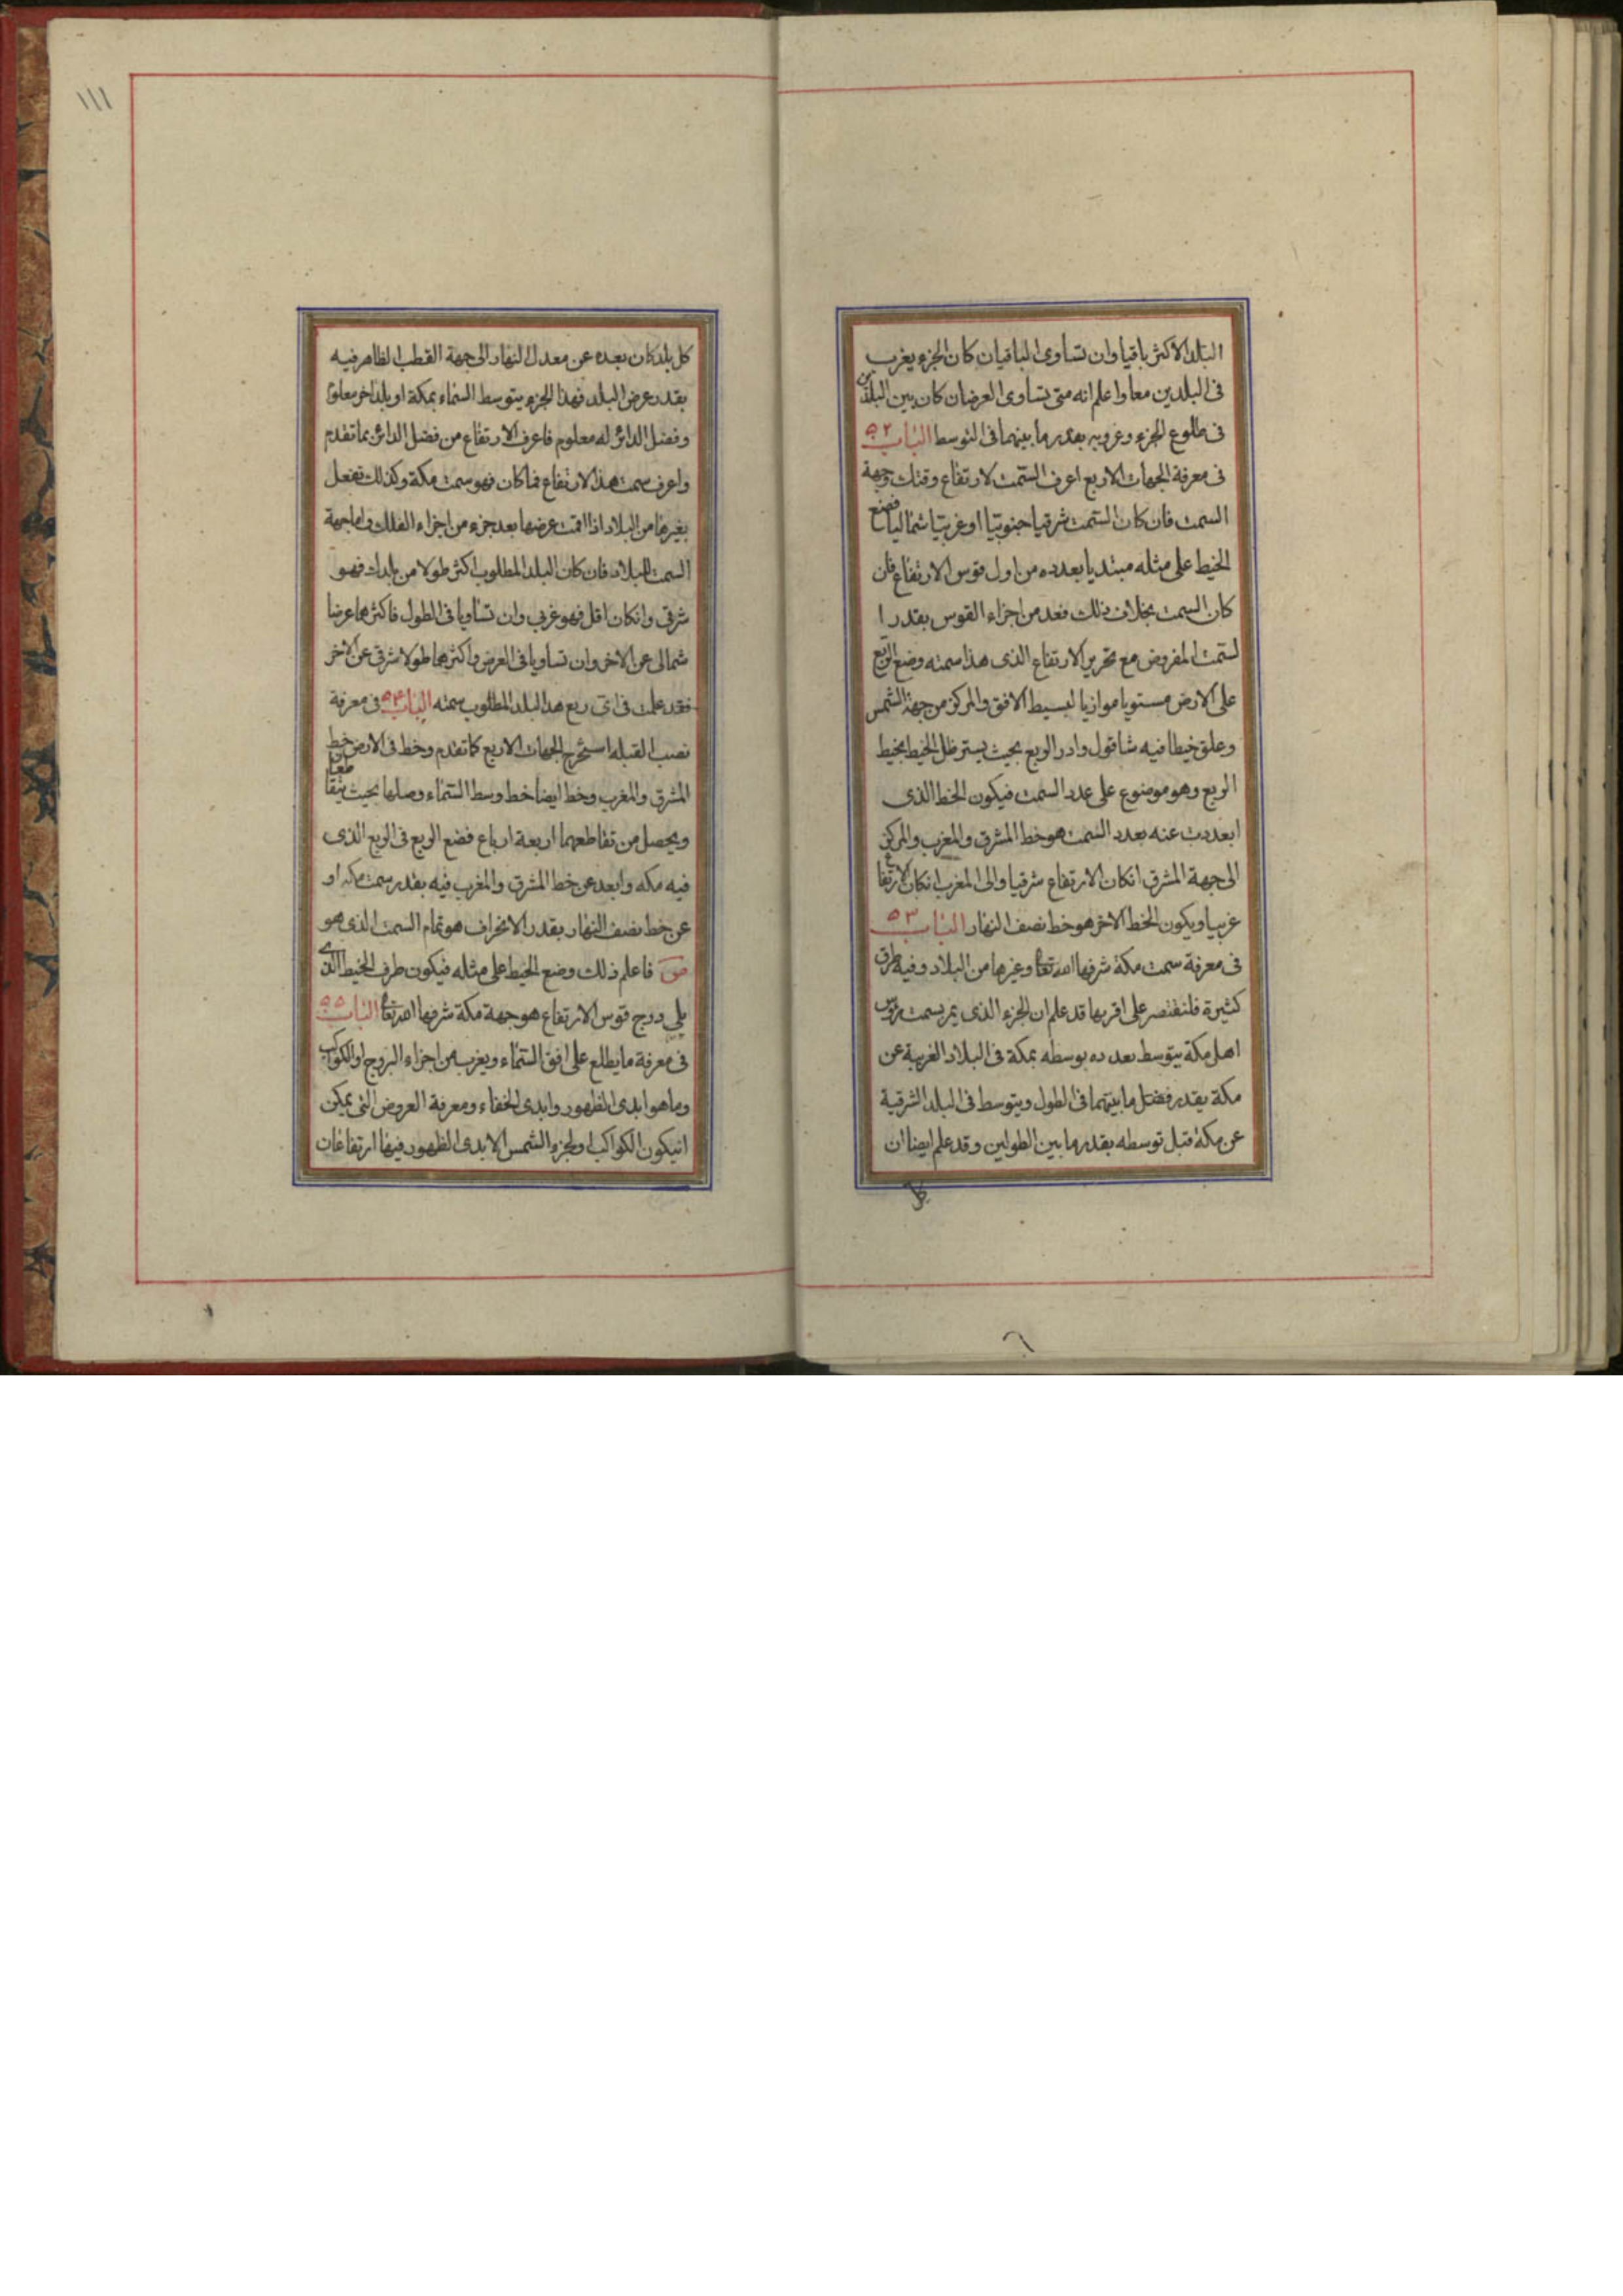 البلد الاكثر باقيا وان تساوى الباقيان كان الجزء يغرب
فى البلدين معا واعلم انه متى تساوى العرضان كان بين البلدين
فى طلوع الجزء وغروبه بقدر ما بينهما فى التوسط الباب ٥٢
فى معرفة الجهات الاربع اعرف السمت لارتفاع وقتك وجهة
السمت فان كان السمت شرقيا جنوبيا او غربيا شماليا فضع
الخيط على مثله مبتديا بعدده من اول قوس الارتفاع فان
كان السمت بخلاف ذلك فعد من اجزاء القوس بقدر ا
لسمت المفروض مع تحرير الارتفاع الذى هذا سمته وضع الربع
على الارض مستويا موازيا لبسيط الافق والمركز من جهة الشمس
وعلق خيطا فيه شاقول وادر الربع بحيث يستر ظل الخيط بخيط
الربع وهو موضوع على عدد السمت فيكون الخط الذى
ابعدت عنه بعدد السمت هو خط المشرق والمغرب والمركز
الى جهة المشرق انكان الارتفاع شرقيا والى المغرب انكان الارتفاع
غربيا ويكون الخط الاخر هو خط نصف النهار الباب ٥٣
فى معرفة سمت مكة شرفها الله تعا وغيرها من البلاد وفيه طرق
كثيرة فلنقتصر على اقربها قد علم ان الجزء الذى يمر بسمت رؤس
اهل مكة يتوسط بعد ده بوسطه بمكة فى البلاد الغربية عن
مكة بقدر فضل ما بينهما فى الطول ويتوسط فى البلد الشرقية
عن مكة قبل توسطه بقدر ما بين الطولين وقد علم ايضا ان
كل
١١١
كل بلد كان بعده عن معدل النهار الى جهة القطب الظاهر فيه
بقدر عرض البلد فهذا الجزء يتوسط السماء بمكة او بلد اخر معلوم
وفضل الدائر له معلوم فاعرف الارتفاع من فضل الدائر بما تقدم
واعرف سمت هذا الارتفاع فما كان فهو سمت مكة وكذلك تفعل
بغيرها من البلاد اذا اقمت عرضها بعد جزء من اجزاء الفلك واما جهة
السمت للبلاد فان كان البلد المطلوب اكثر طولا من بلدك فهو
شرقى وانكان اقل فهو غربى وان تساويا فى الطول فاكثرهما عرضا
شمالى عن الاخر وان تساويا فى العرض واكثرهما طولا شرقى عن الاخر
فقد علمت فى اى ربع هذا البلد المطلوب سمته الباب ٥٤ فى معرفة
نصب القبله استخرج الجهات الاربع كما تقدم وخط فى الارض خط
المشرق والمغرب وخط ايضا خط وسط السماء وصلها بحيث يتقاطعان
ويحصل من تقاطعهما اربعة ارباع فضع الربع فى الربع الذى
فيه مكه وابعد عن خط المشرق والمغرب فيه بقدر سمت مكه او
عن خط نصف النهار بقدر الانحراف هو تمام السمت الذى هو
ص فاعلم ذلك وضع الخيط على مثله فيكون طرف الخيط الذى
يلى درج قوس الارتفاع هو جهة مكة شرفها الله تعا الباب ٥٥
فى معرفة ما يطلع على افق السماء ويغرب من اجزاء البروج او الكواكب
وما هو ابدى الظهور وابدى الخفاء ومعرفة العروض التى يمكن
انيكون الكواكب او لجزء الشمس الابدى الظهور فيها ارتفاعان